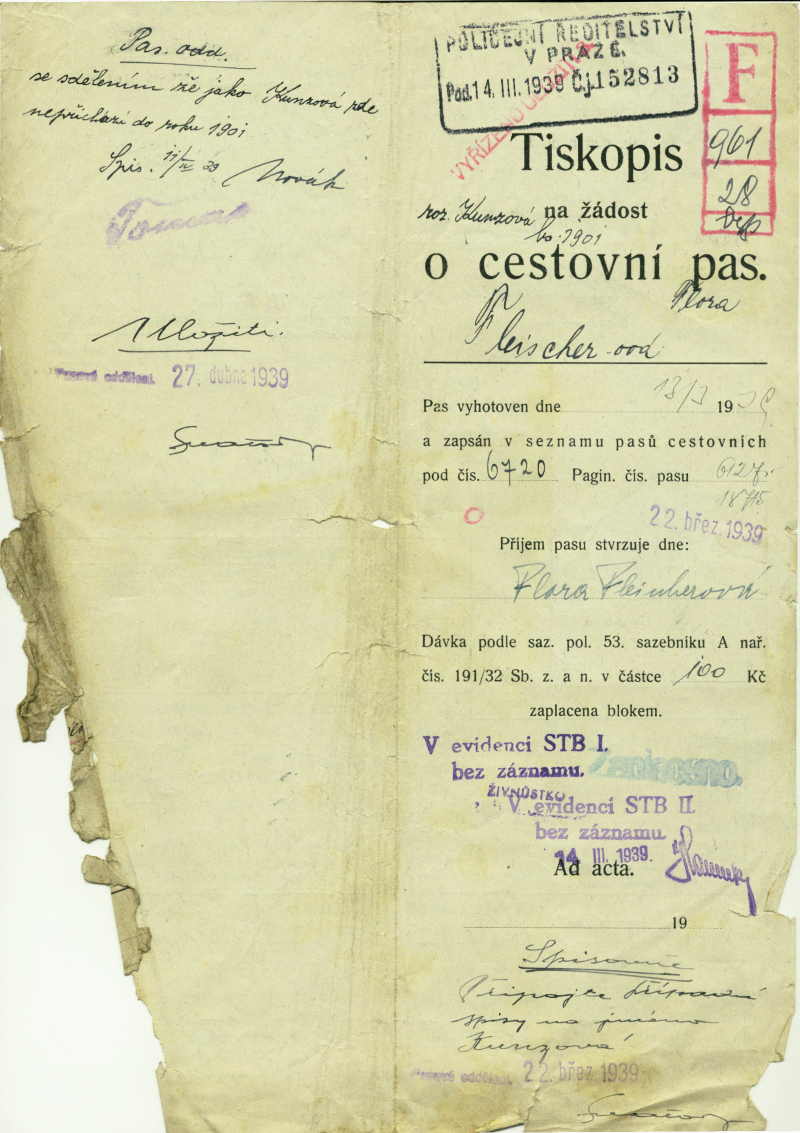 Pas. odd.
se sdělením že jako Kunzová zde
nepřichází do roku 1901
Spis. 11/IV 39 Novák
Uložiti.
Pasové oddělení. 27. dubna 1939
POLICEJNÍ ŘEDITELSTVÍ
V PRAZE.
Pod. 14. III. 1939 Čj. 152813
VYŘÍZENO
F
961
28
Tiskopis
roz. Kunzová na žádost
1901
o cestovní pas.
Flora
Fleischer ová
Pas vyhotoven dne 13/3 1939
a zapsán v seznamu pasů cestovních
pod čís. 6720 Pagin. čís. pasu
22. břez. 1939
Příjem pasu stvrzuje dne:
Flora Fleischerová
Dávka podle saz. pol. 53. sazebníku A nař.
čís. 191/32 Sb. z. a n. v částce 100 Kč
zaplacena blokem.
V evidenci STB I.
bez záznamu.
ŽIVNOSTKO
V evidenci STB II.
bez záznamu.
14. III. 1939.
Ad acta.
19
Spisovně
Připojte případné
spisy na jméno
Kunzová
Pasové oddělení. 22. břez 1939